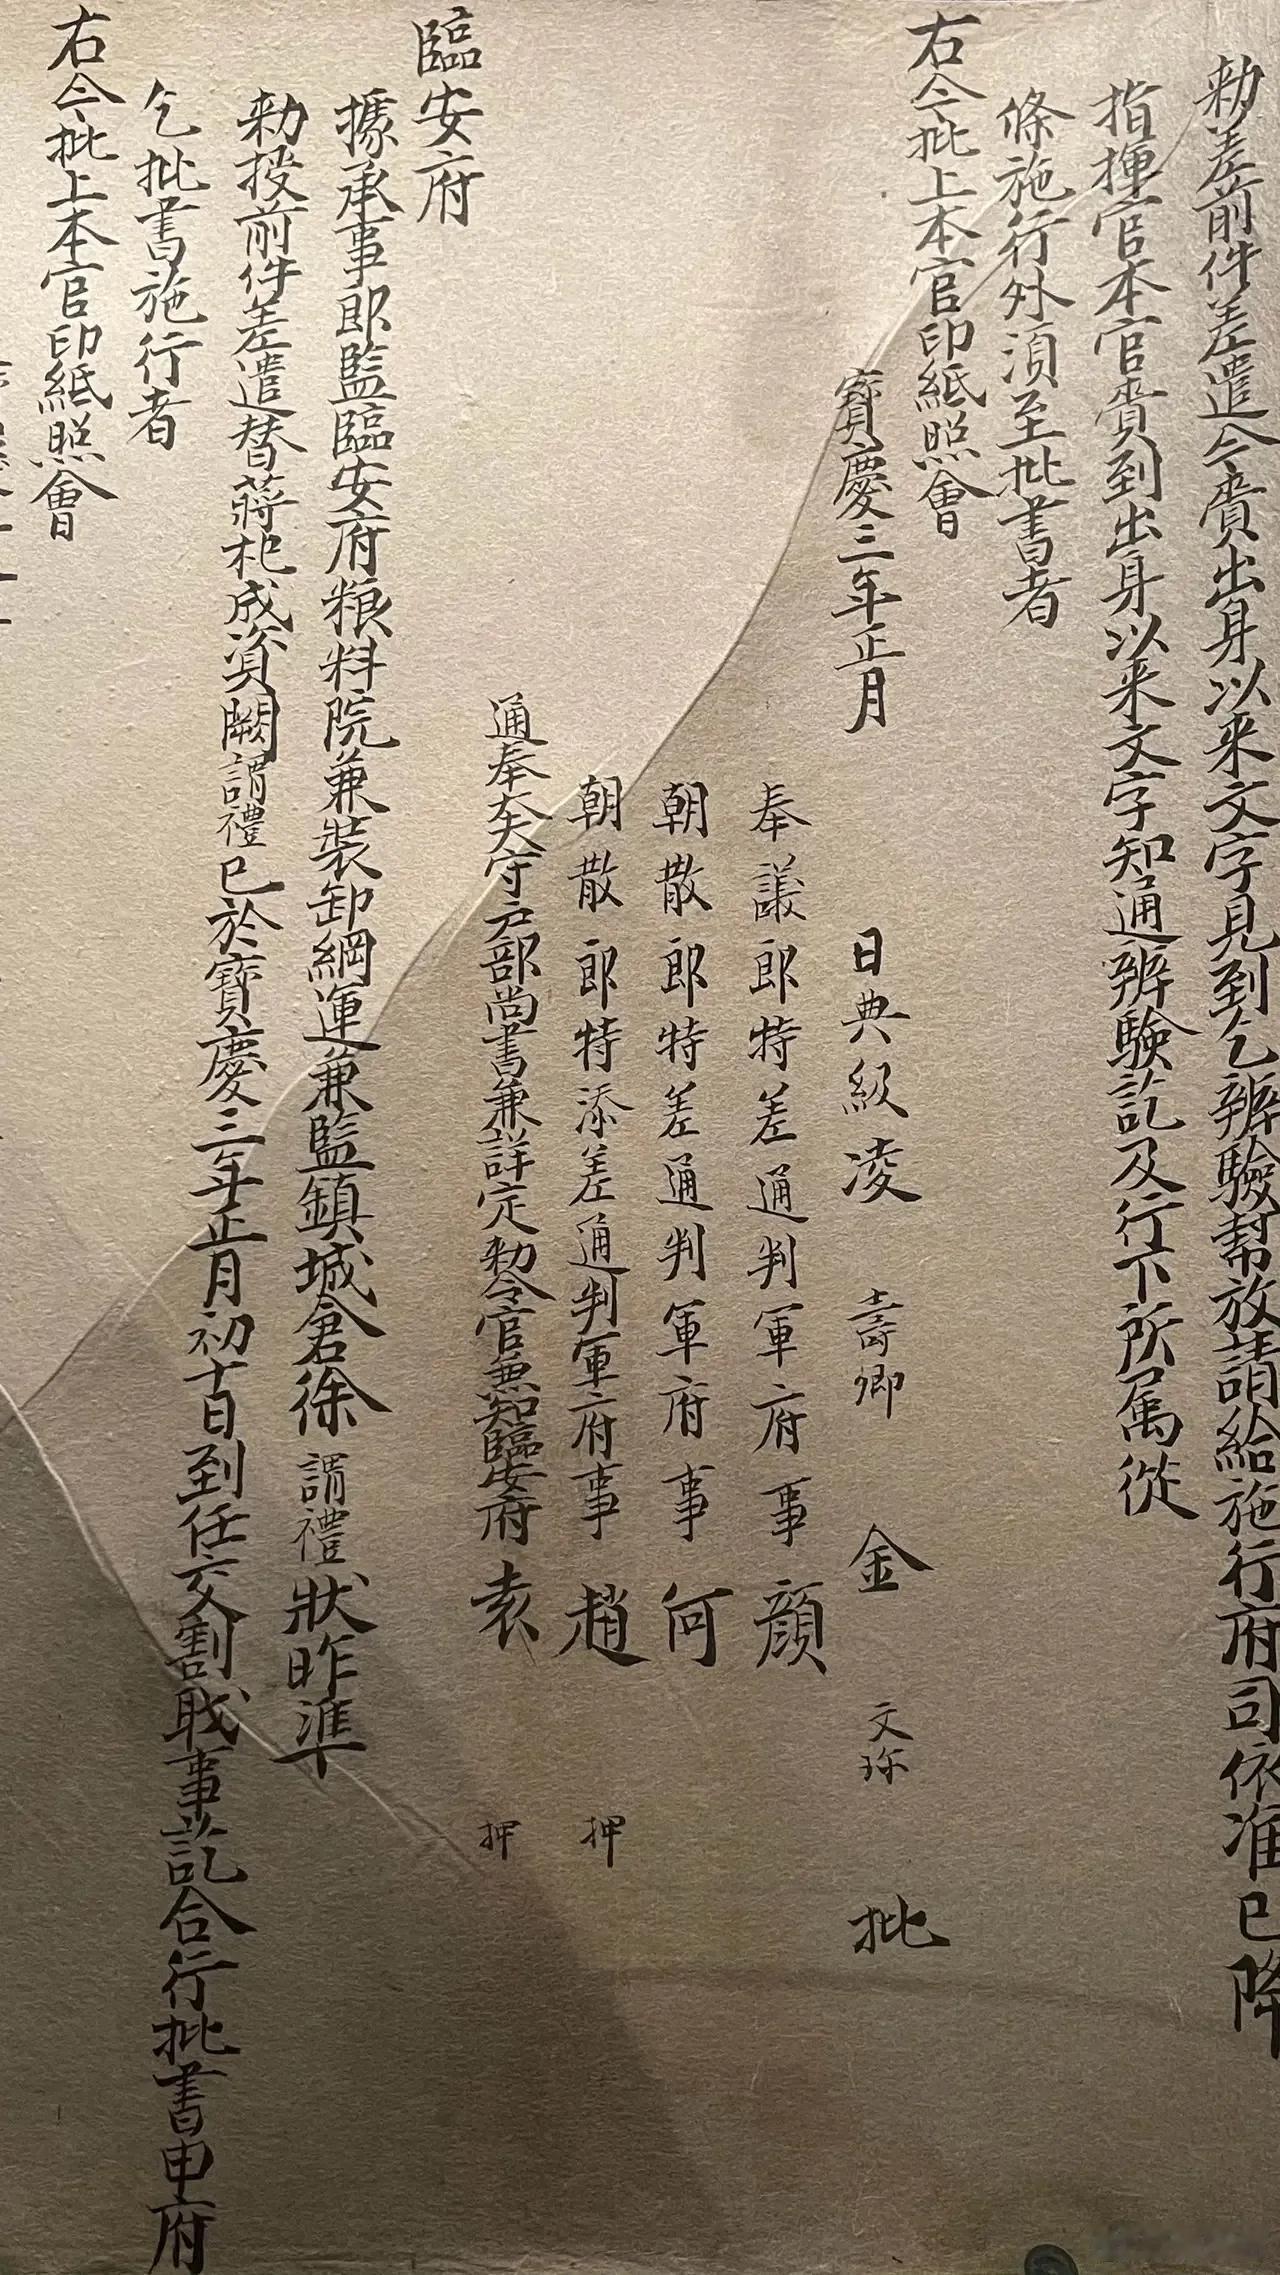 勑差前件差遣今賫出身以来文字見到乞辨驗幇放請給施行府司依准已降
指揮官本官賫到出身以来文字知通辨驗訖及行下所属從
條施行外湏至批書者
右今批上本官印紙照會
寶慶三年正月 日典級凌 壽卿 金 文珎 批
奉議郎特差通判軍府事 顔
朝散郎特差通判軍府事 何
朝散郎特添差通判軍府事 趙 押
通奉大夫守户部尚書兼詳定勑令官兼知臨安府 袁 押
臨安府
據承事郎監臨安府粮料院兼裝卸綱運兼監鎮城倉徐 謂禮狀昨準
勑授前件差遣替蔣杞成資闕謂禮已於寶慶三年正月初十日到任交割戝事訖合行批書申府
乞批書施行者
右今批上本官印紙照會